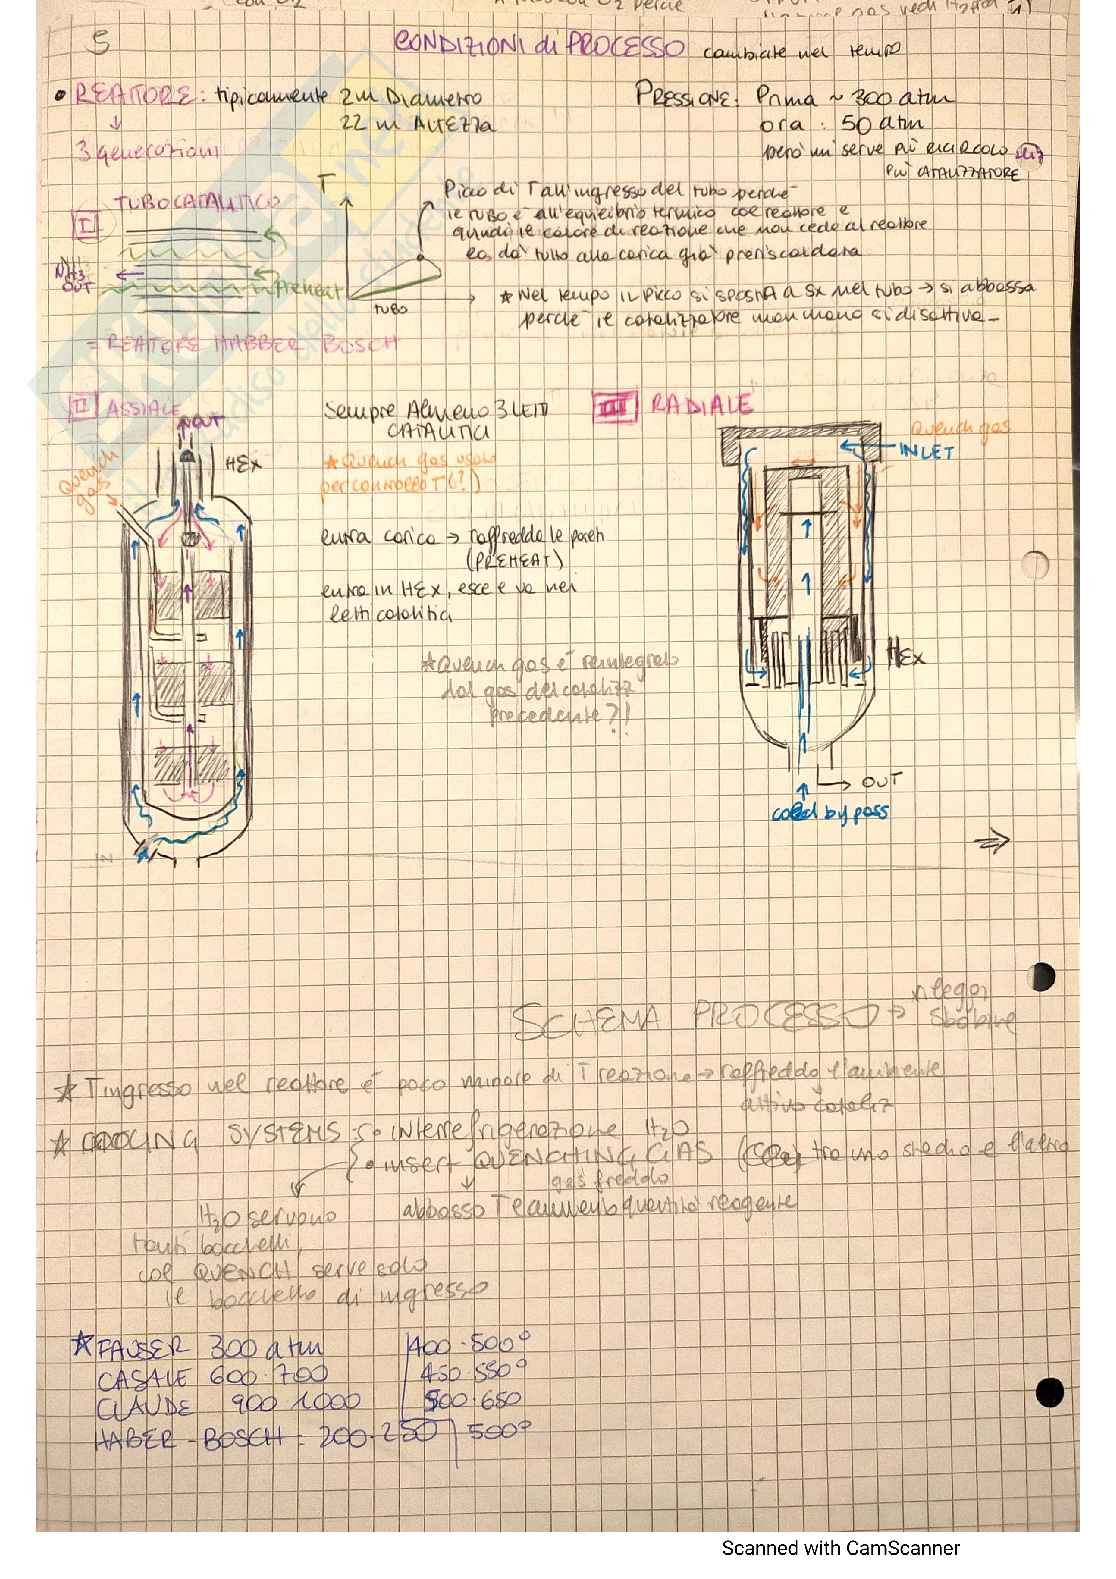 5
CONDIZIONI di PROCESSO cambiate nel tempo
• REATTORE: tipicamente 2m Diametro
22 m ALTEZZA
PRESSIONE: Prima ~ 300 atm
ora : 50 atm
però mi serve più RICIRCOLO
più CATALIZZATORE
3 generazioni
I TUBO CATALITICO
NH3 OUT
Preheat
T
TUBO
Picco di T all'ingresso del tubo perché
il TUBO è all'equilibrio termico col reattore e
quindi il calore di reazione che non cede al reattore
lo dà tutto alla carica già preriscaldata
* Nel tempo IL PICCO SI SPOSTA a SX nel tubo → si abbassa
perché il catalizzatore man mano si disattiva -
= REATTORE HABBER BOSCH
II ASSIALE
OUT
HEx
Quench gas
IN
Sempre Almeno 3 LETTI
CATALITICI
* Quench gas usato
per controllo T (?)
entra carica → raffredda le pareti
(PREHEAT)
entra in HEx, esce e va nei
letti catalitici
* Quench gas è reintegrato
dal gas del cataliz
precedente?!
III RADIALE
Quench gas
INLET
HEx
OUT
cold by pass
⇒
SCHEMA PROCESSO → rileggi
sbobine
* T ingresso nel reattore è poco minore di T reazione → raffredda l'ambiente
attivo cataliz
* COOLING SYSTEMS: • interrefrigerazione H2O
• insert QUENCHING GAS tra uno stadio e l'altro
gas freddo
H2O servono
tanti bocchelli,
col QUENCH serve solo
il bocchello di ingresso
abbasso T e aumento quantità reagente
* FAUSER 300 atm | 400-500°
CASALE 600-700 | 450-550°
CLAUDE 900 1000 | 500-650
HABER-BOSCH: 200-250 | 500°
Scanned with CamScanner